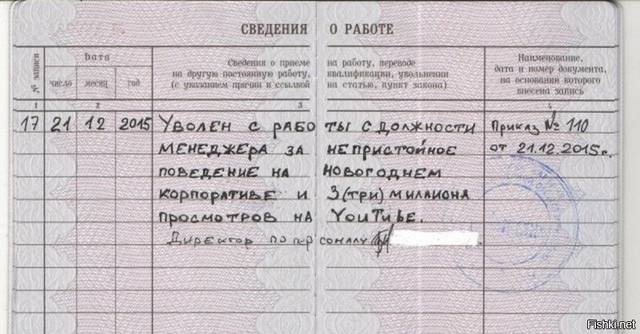 СВЕДЕНИЯ О РАБОТЕ
№ записи
Дата
число месяц год
Сведения о приеме на работу, переводе
на другую постоянную работу, квалификации, увольнении
(с указанием причин и ссылкой на статью, пункт закона)
Наименование,
дата и номер документа,
на основании которого
внесена запись
1 2 3 4
17 21 12 2015 Уволен с работы с должности Приказ № 110
менеджера за непристойное от 21.12.2015г.
поведение на новогоднем
корпоративе и 3 (три) миллиона
просмотров на YouTube.
Директор по персоналу
Fishki.net